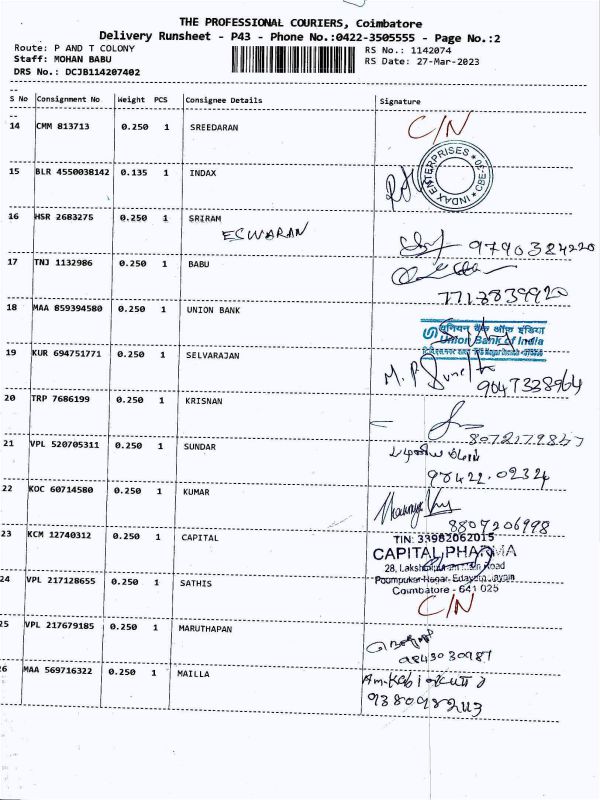 THE PROFESSIONAL COURIERS, Coimbatore
Delivery Runsheet - P43 - Phone No.:0422-3505555 - Page No.:2
Route: P AND T COLONY RS No.: 1142074
Staff: MOHAN BABU RS Date: 27-Mar-2023
DRS No.: DCJB114207402
S No Consignment No Weight PCS Consignee Details Signature
14 CMM 813713 0.250 1 SREEDARAN C/N
15 BLR 4550038142 0.135 1 INDAX INDAX ENTERPRISES CBE-30
16 HSR 2683275 0.250 1 SRIRAM
ESWARAN 9790384220
17 TNJ 1132986 0.250 1 BABU
7713839920
18 MAA 859394580 0.250 1 UNION BANK
यूनियन बैंक ऑफ़ इंडिया
Union Bank of India
19 KUR 694751771 0.250 1 SELVARAJAN
9047338964
20 TRP 7686199 0.250 1 KRISNAN
21 VPL 520705311 1 0.250 SUNDAR
98422.02324
22 KOC 60714580 0.250 1 KUMAR
8807206998
23 KCM 12740312 0.250 1 CAPITAL TIN: 33982062015
CAPITAL PHARMA
28, Road
Coimbatore - 641 025
24 VPL 217128655 0.250 1 SATHIS C/N
25 VPL 217679185 0.250 1 MARUTHAPAN
9843030987
26 MAA 569716322 0.250 1 MAILLA